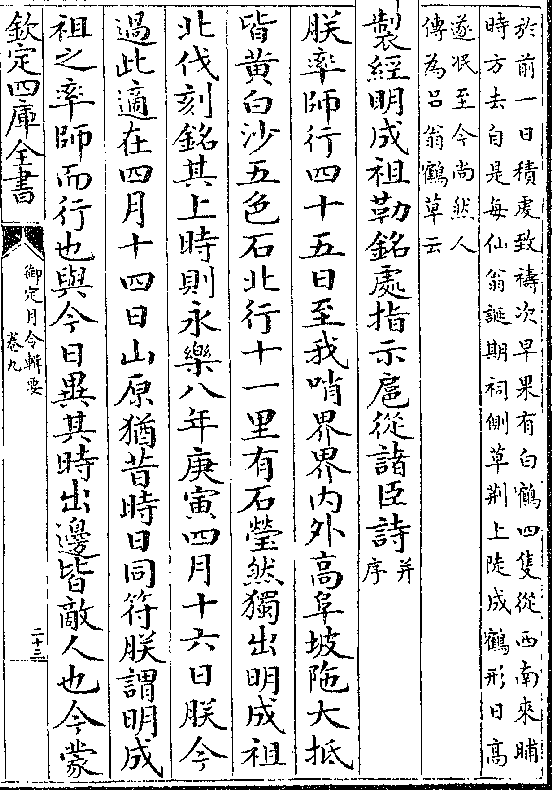 於前一日積處致禱次早果有白鶴四隻從西南來晡
時方去自是每仙翁誕期祠側草荆上陡成鶴形日高
遂泯至今尚然人
傳為呂翁鶴草云
製經明成祖勒銘處指示扈從諸臣詩并序
朕率師行四十五日至我哨界界内外高阜坡陁大抵
皆黄白沙五色石北行十一里有石瑩然獨出明成祖
北伐刻銘其上時則永樂八年庚寅四月十六日朕今
過此適在四月十四日山原猶昔時日同符朕謂明成
祖之率師而行也與今日異其時出邊皆敵人也今蒙
欽定四庫全書
御定月令輯要
卷九
二十三